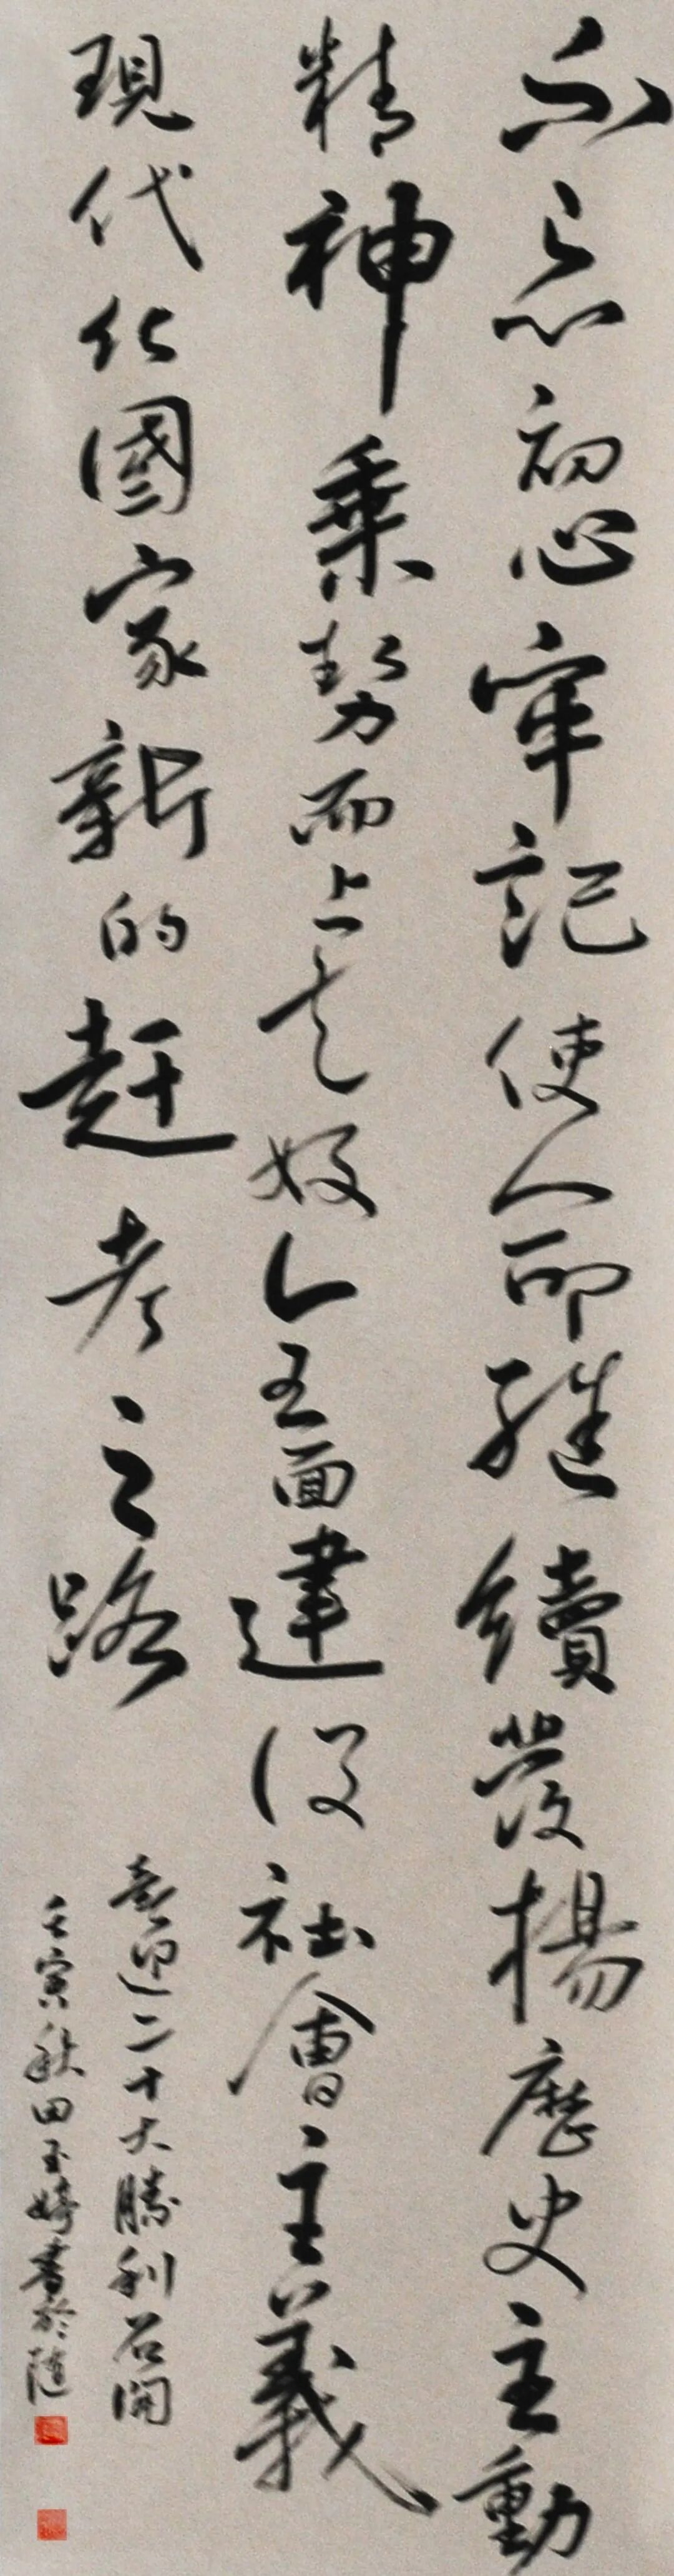 不忘初心牢記使命繼續發揚歷史主動
精神乘勢而上走好全面建設社會主義
現代化國家新的趕考之路
喜迎二十大勝利召開
壬寅秋田玉婷書於隨